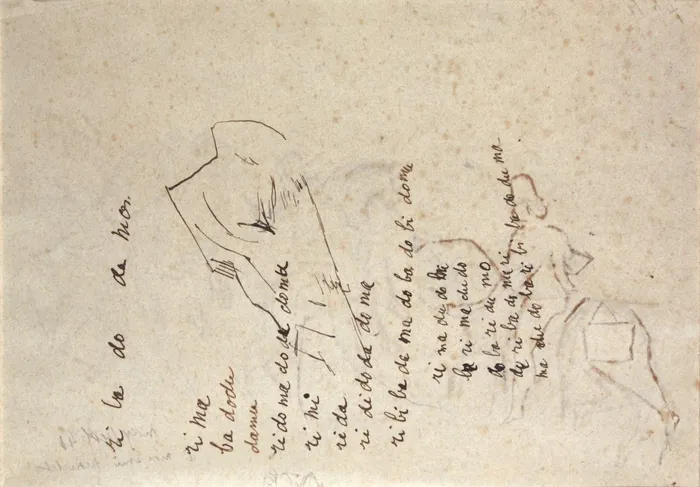 ri ba do da mon
ri ma
ba dodu
damu
ri do ma do da domu
ri mi
rida
ri di do da do ma
ri bi ba da ma do ba do bi domu
ri ma du do
ba ri ma du do
do ba ri du mo
de ri ba di ma ri bi ba do du ma
ma du do ba ri